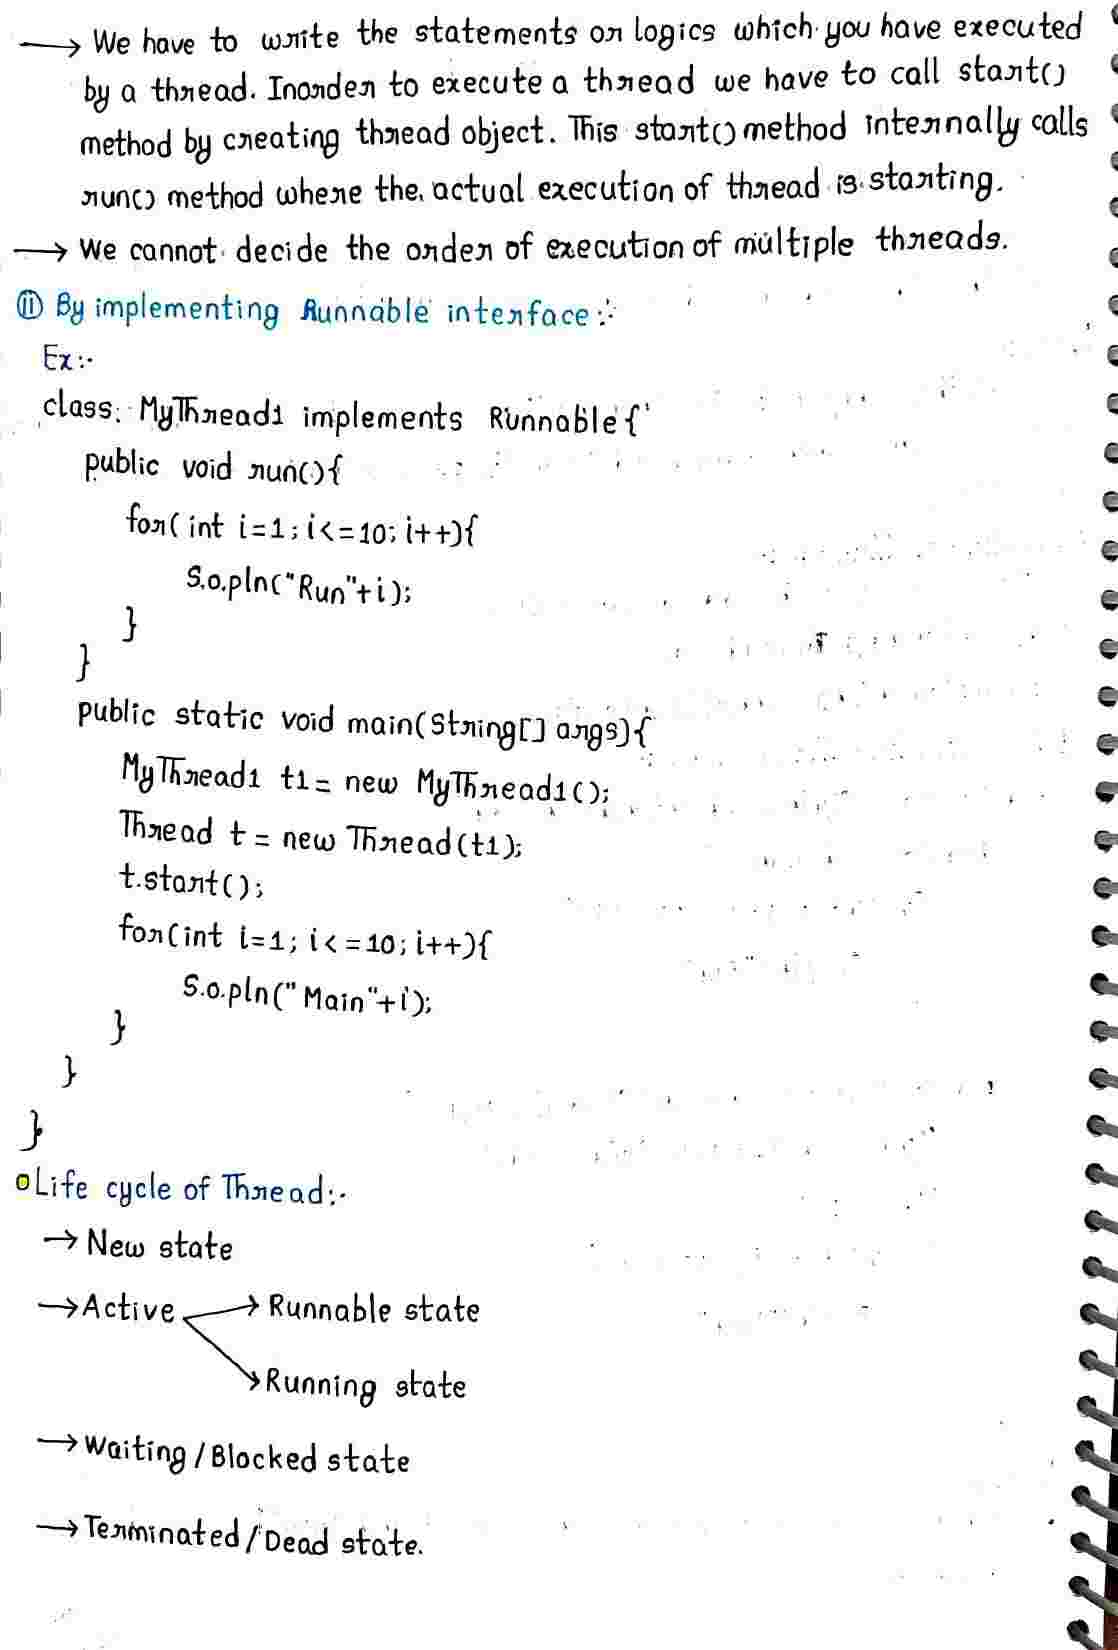 → We have to write the statements or logics which you have executed
by a thread. Inorder to execute a thread we have to call start()
method by creating thread object. This start() method internally calls
run() method where the actual execution of thread is starting.
→ We cannot decide the order of execution of multiple threads.
ⓘⓘ By implementing Runnable interface :-
Ex:-
class MyThread1 implements Runnable{
public void run(){
for( int i=1; i<=10; i++){
S.o.pln("Run"+i);
}
}
public static void main(String[] args){
MyThread1 t1= new MyThread1();
Thread t = new Thread(t1);
t.start();
for(int i=1; i<=10; i++){
S.o.pln("Main"+i);
}
}
}
Life cycle of Thread:-
→ New state
→ Active → Runnable state
→ Running state
→ Waiting/Blocked state
→ Terminated/Dead state.